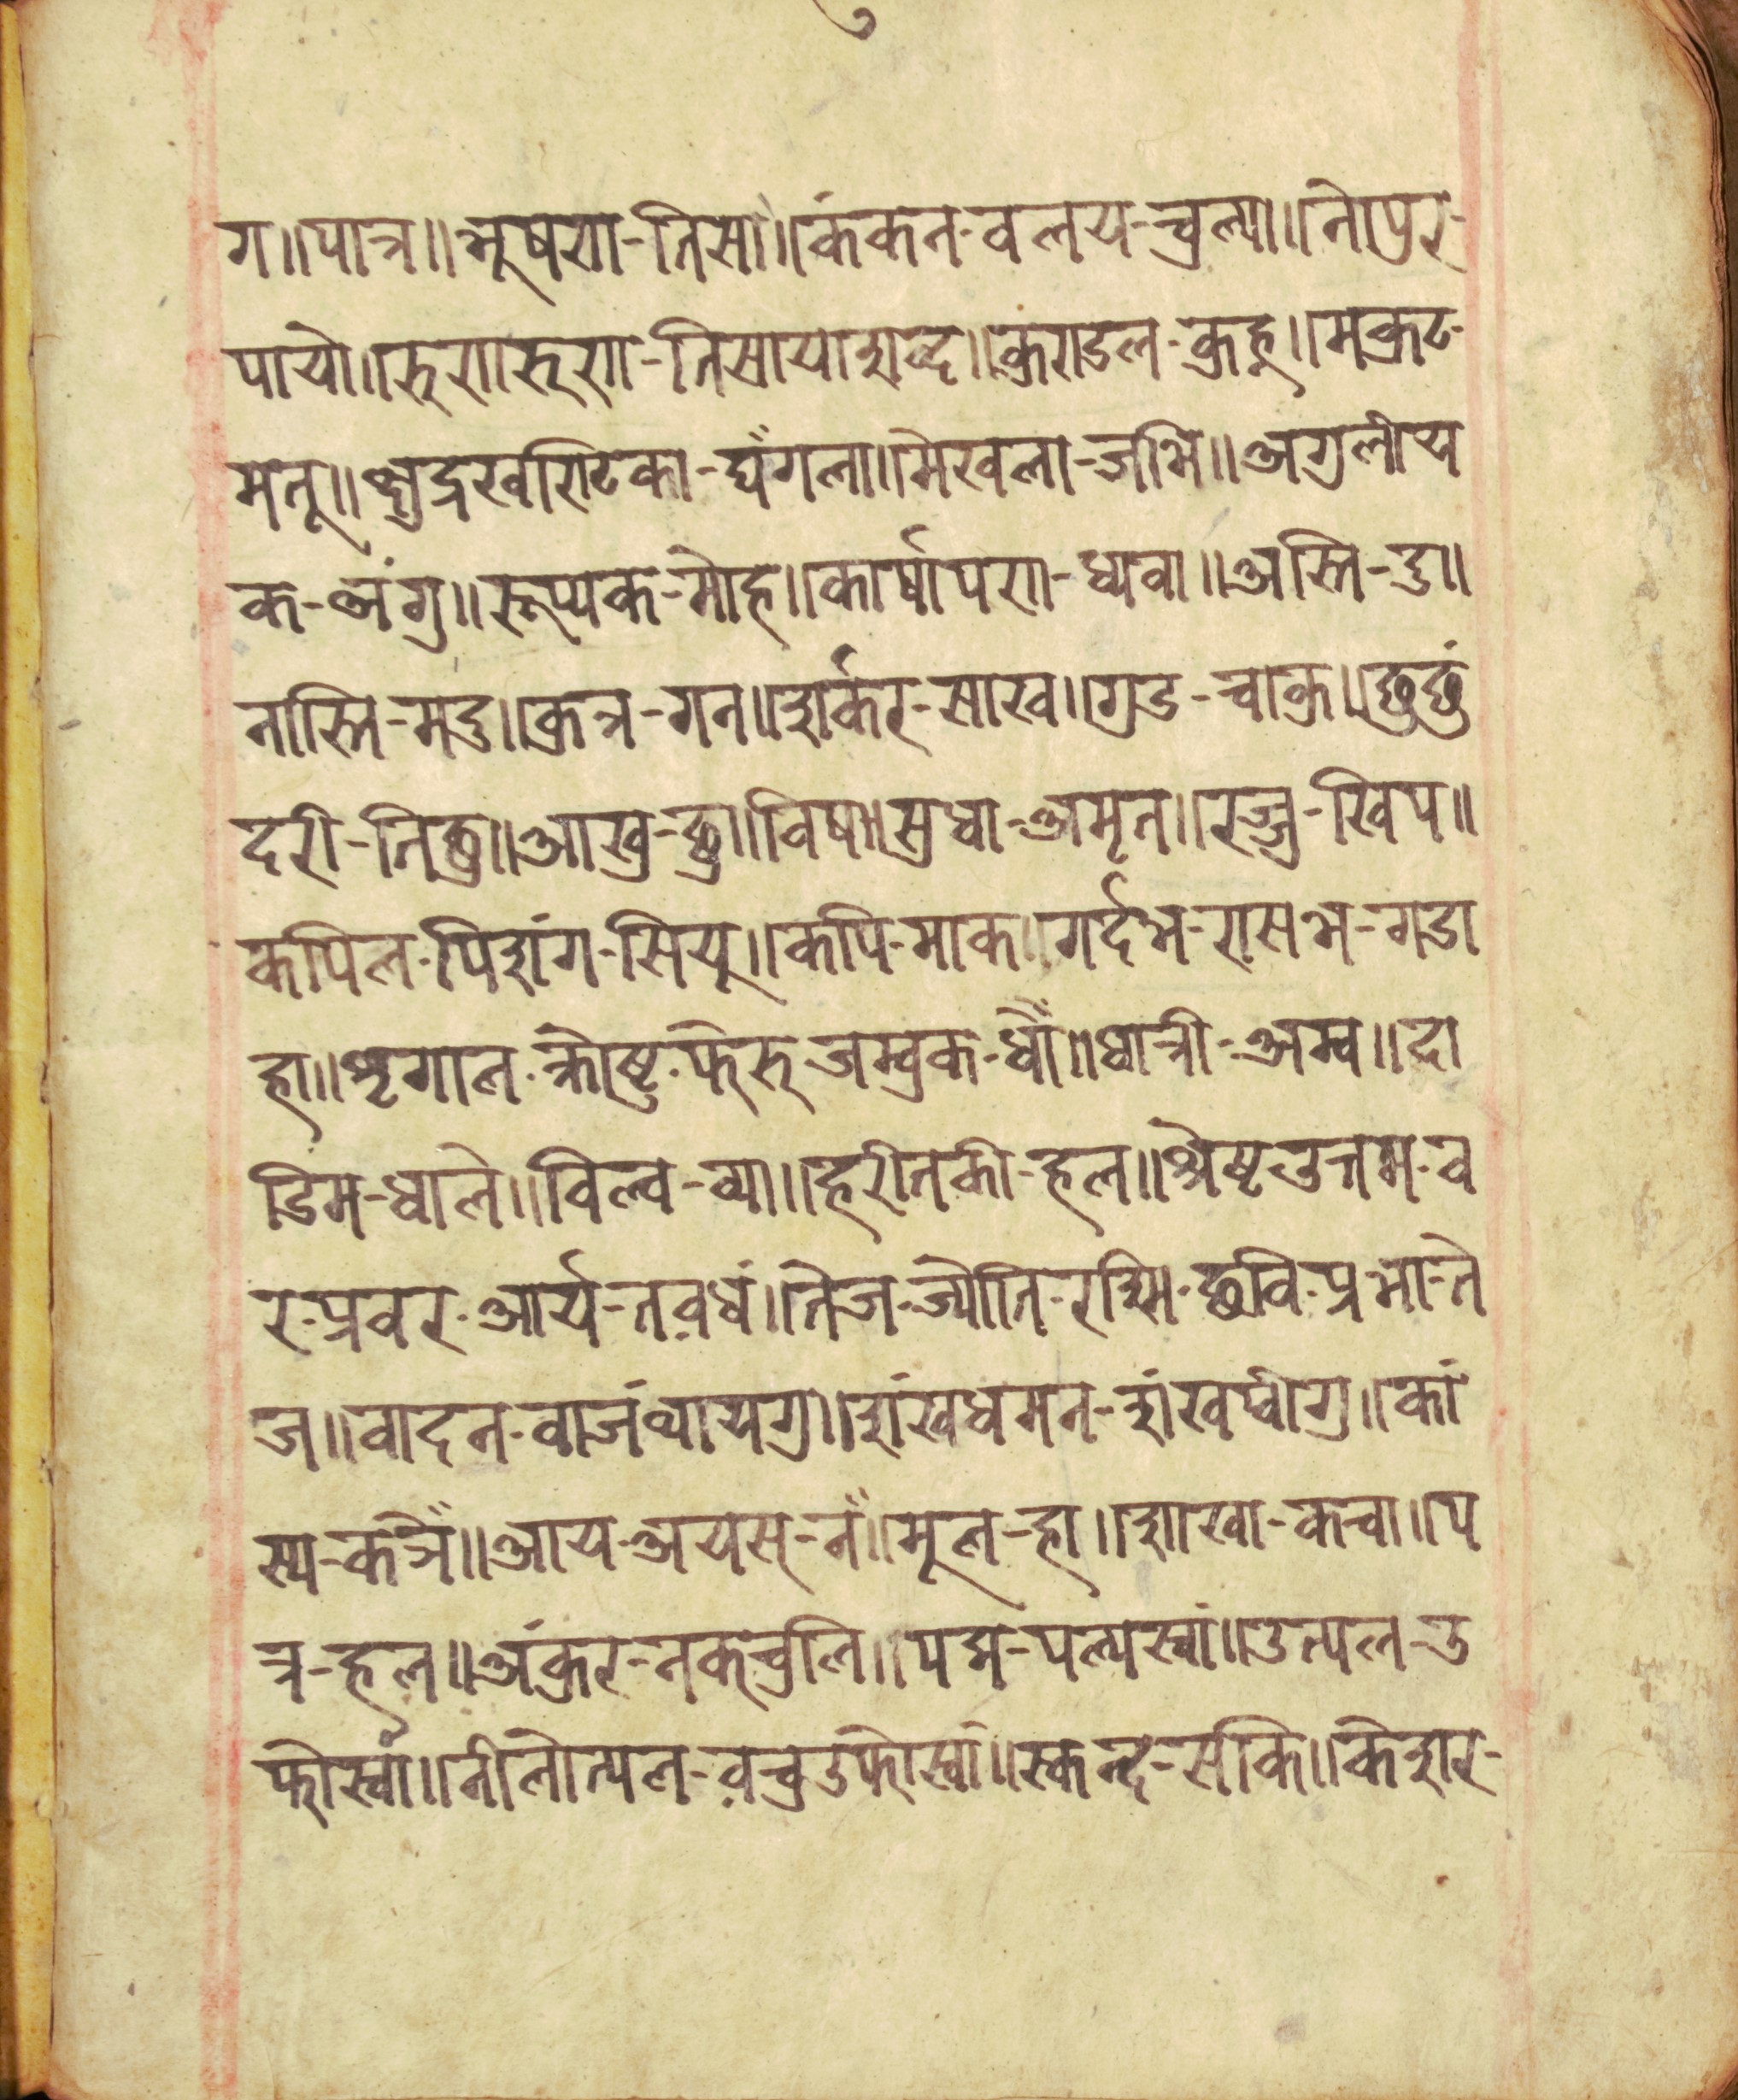 ग॥पात्र॥भूषण-तिसा॥कंकन-वलय-चुल्या॥नेपुर-
पायो॥रुणारुणा-तिसायाशब्द॥कुण्डल-कुहू॥मकुट-
मतू॥क्षुद्रखण्टिका-घँगला॥मेखला-जभि॥अगुलीय
क-अंगु॥रूप्यक-मोह॥कार्षापण-ध्यवा॥अस्ति-दु॥
नास्ति-मदु॥कुत्र-गन॥शर्कर-साख॥गुड-चाकु॥छुछुं
दरी-तिछु॥आखु-छु॥विष॥सुधा-अमृत॥रज्जु-खिप॥
कपिल-पिशंग-सियू॥कपि-माक॥गर्दभ-रासभ-गडा
हा॥शृगाल-क्रोष्टु-फेरु जम्वुक-धौं॥धात्री-अम्व॥दा
डिम-धाले॥विल्व-व्या॥हरीतकी-हल॥श्रेष्ट उत्तम-व
र-प्रवर-आर्य-तवधं॥तेज-ज्योति-रश्मि-छवि-प्रभा-ते
ज॥वादन-वाजंथायगु॥शंखधमन-शंखप्वीगु॥कां
स्य-कञँ॥आय-अयस्-नँ॥मूल-हा॥शाखा-कचा॥प
त्र-हल॥अंकुर-नक्चुलि॥पद्म-पल्यस्वां॥उत्पल-उ
फोस्वां॥नीलोत्पल-वचुउफोस्वां॥स्कन्द-सकि॥केशर-